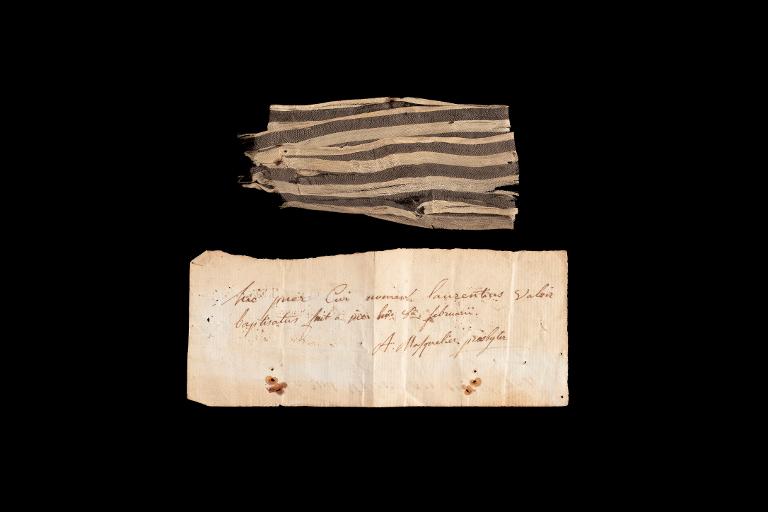 hic puer Cui nomen laurentius Valoir
baptisatus fuit a me hac die februarii.
A. Masquelier presbyter